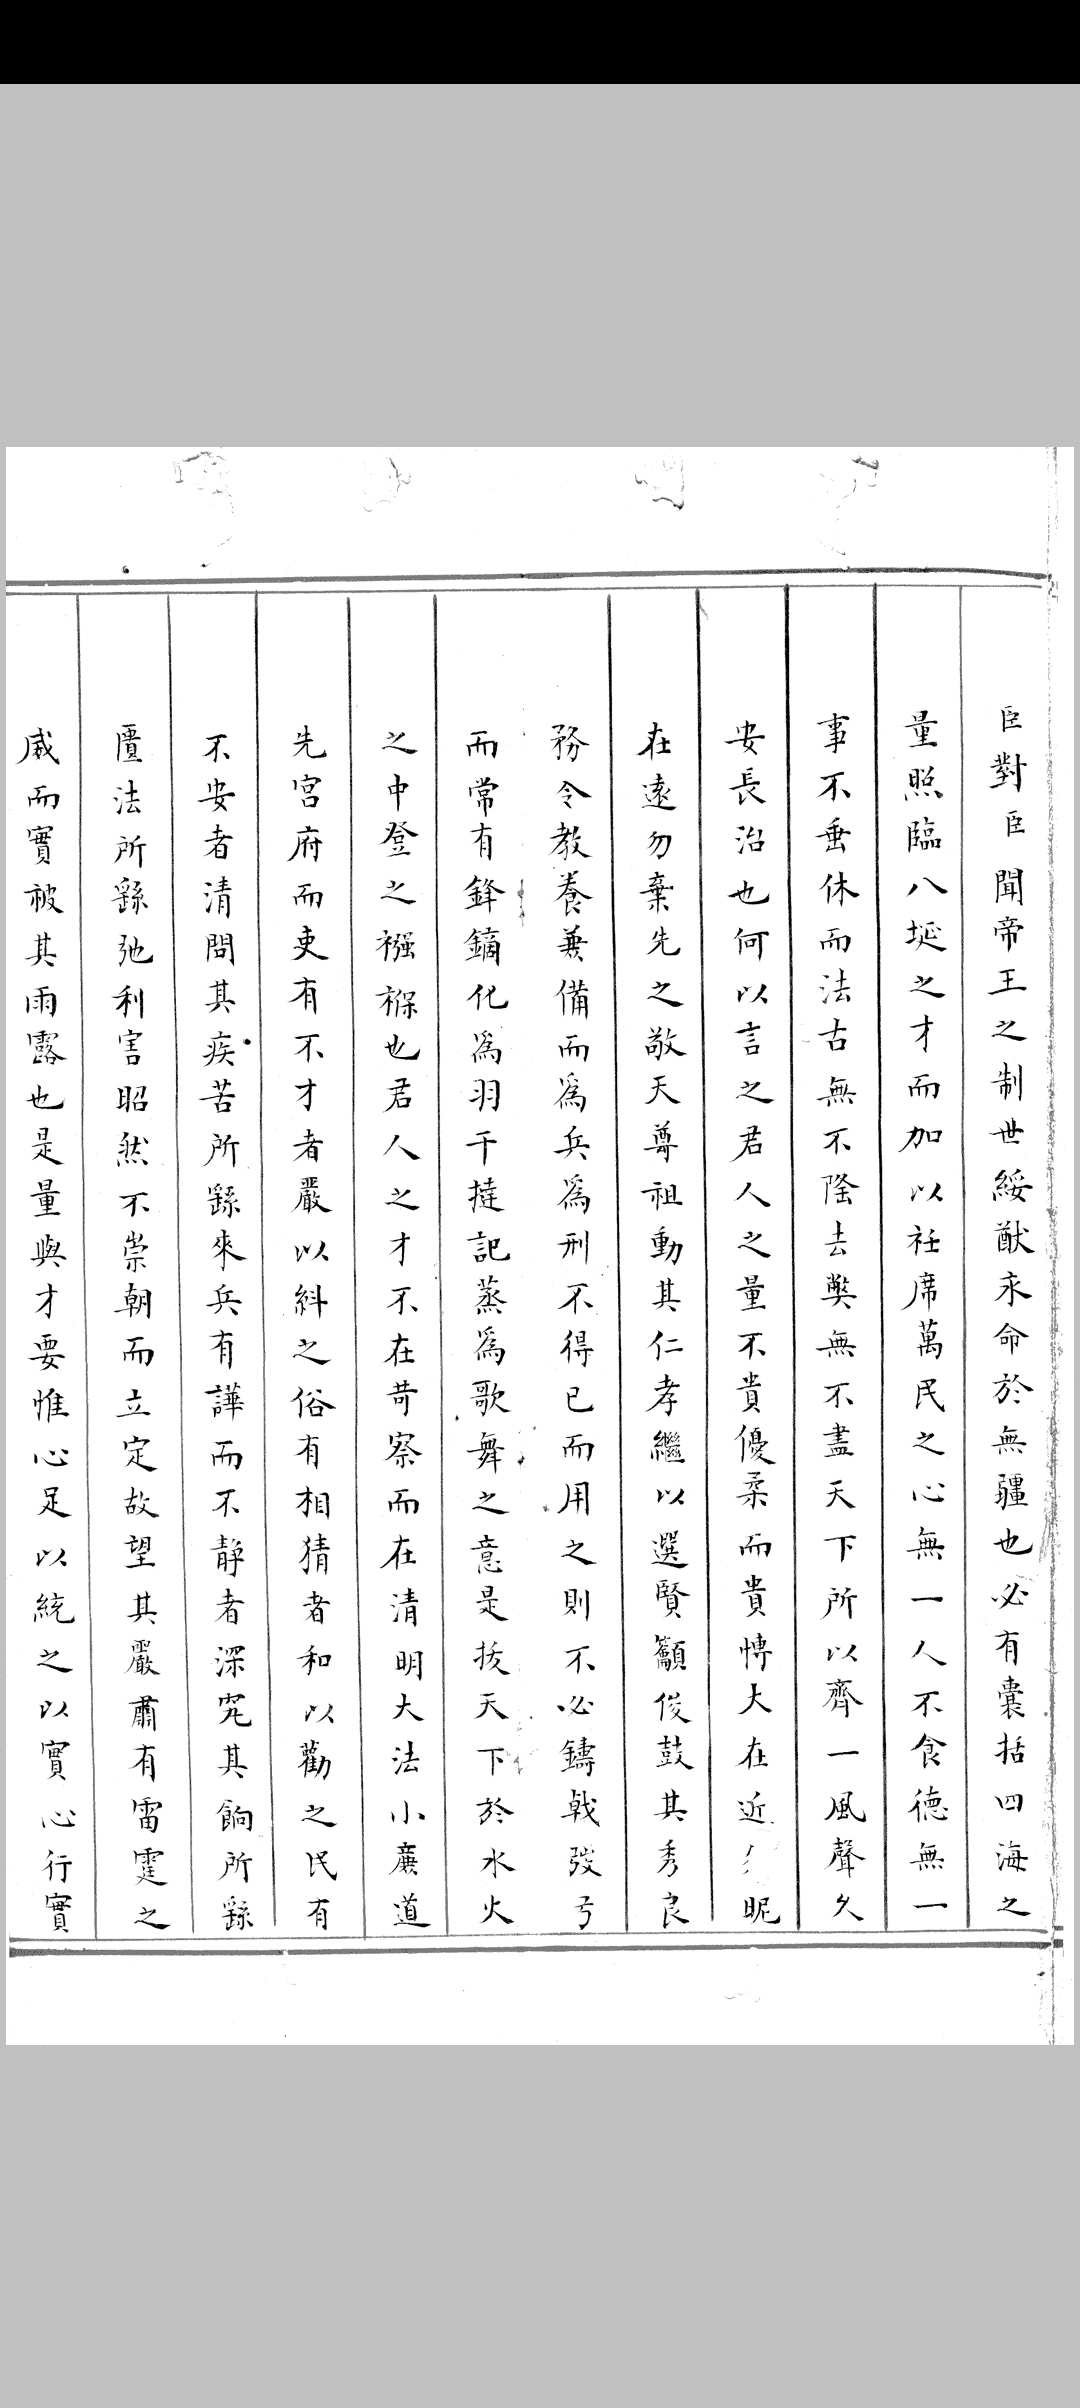 臣對臣聞帝王之制世綏猷永命於無疆也必有囊括四海之
量照臨八埏之才而加以衽席萬民之心無一人不食德無一
事不垂休而法古無不隆去獘無不盡天下所以齊一風聲久
安長治也何以言之君人之量不貴優柔而貴博大在近勿昵
在遠勿棄先之敬天尊祖動其仁孝繼以選賢籲俊鼓其秀良
務令教養兼備而為兵為刑不得已而用之則不必鑄戟弢弓
而常有鋒鏑化為羽干撻記蒸為歌舞之意是拔天下於水火
之中登之襁褓也君人之才不在苛察而在清明大法小廉道
先宮府而吏有不才者嚴以糾之俗有相猜者和以勸之民有
不安者清問其疾苦所繇來兵有譁而不靜者深究其餉所繇
匱法所繇弛利害昭然不崇朝而立定故望其嚴肅有雷霆之
威而實被其雨露也是量與才要惟心足以統之以實心行實